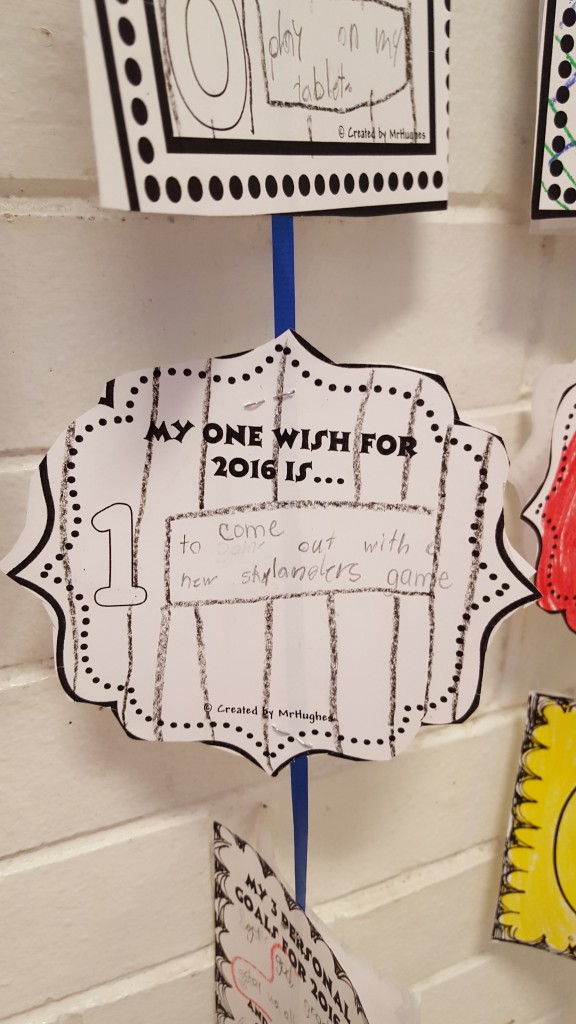 0
play on my
tablet
© Created by MrHughes
MY ONE WISH FOR
2016 IS...
1
to come out with a
new skylanders game
© Created by MrHughes
MY 3 PERSONAL
GOALS FOR 2016
AND